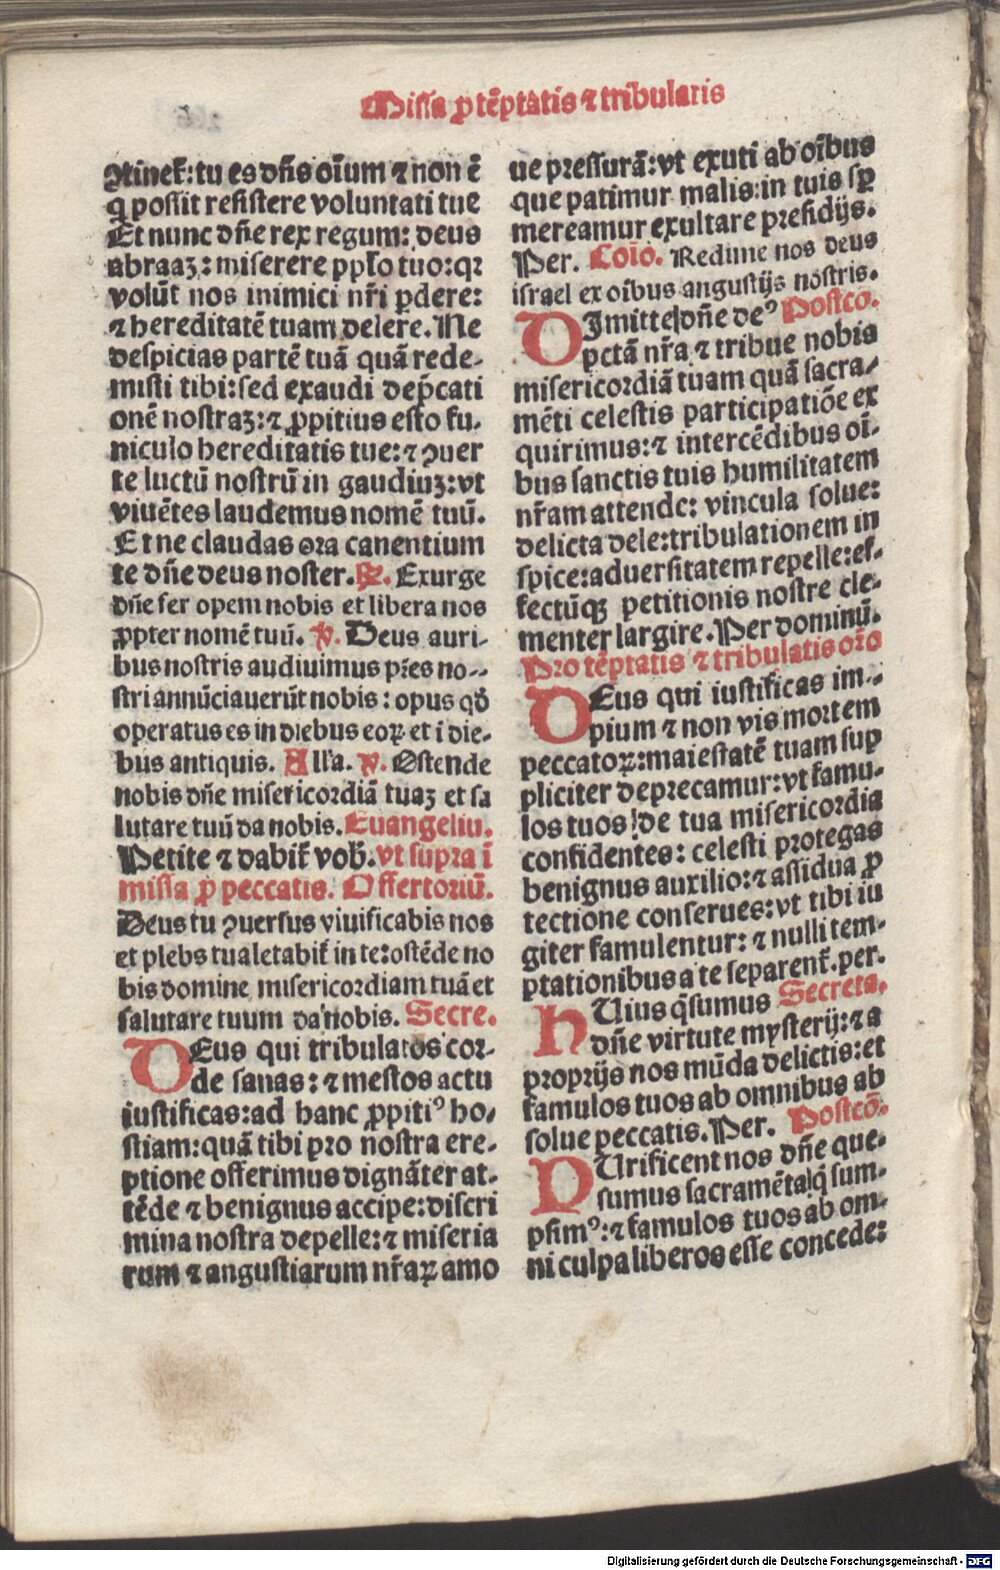 Missa ꝓ tēptatis ⁊ tribulatis
ꝯtinet̃: tu es dñs oīm ⁊ non ē
q̇ possit resistere voluntati tue
Et nunc dñe rex regum: deus
abraaʒ: miserere ppľo tuo: qꝛ
volūt nos inimici nr̃i ꝑdere:
⁊ hereditatē tuam delere. Ne
despicias partē tuā quā rede-
misti tibi: sed exaudi dep̄cati
onē nostraʒ: ⁊ ꝓpitius esto fu-
niculo hereditatis tue: ⁊ ꝯuer
te luctū nostrū in gaudiuʒ: vt
viuētes laudemus nomē tuū.
Et ne claudas ora canentium
te dñe deus noster. ℟. Exurge
dñe fer opem nobis et libera nos
ꝓpter nomē tuū. ℣. Deus auri-
bus nostris audiuimus pr̃es no-
stri annūciauerūt nobis: opus qď
operatus es in diebus eoꝝ et i die-
bus antiquis. Alľa. ℣. Ostende
nobis dñe misericordiā tuaʒ et sa
lutare tuū da nobis. Euangeliū.
Petite ⁊ dabit̃ vob̃. vt supra ī
missa ꝓ peccatis. Offertoriū.
Deus tu ꝯuersus viuificabis nos
et plebs tua letabit̃ in te: ostēde no
bis domine misericordiam tuā et
salutare tuum da nobis. Secre.
DEus qui tribulatos cor-
de sanas: ⁊ mestos actu
iustificas: ad hanc ꝓpitiꝰ ho-
stiam: quā tibi pro nostra ere-
ptione offerimus dignāter at-
tēde ⁊ benignus accipe: discri
mina nostra depelle: ⁊ miseria
rum ⁊ angustiarum nr̃aꝝ amo
ue pressurā: vt exuti ab oībus
que patimur malis: in tuis sꝑ
mereamur exultare presidijs.
Per. Coīo. Redime nos deus
israel ex oībus angustijs nostris.
DImitte dñe deꝰ Postcō.
pctā nr̃a ⁊ tribue nobis
misericordiā tuam quā sacra-
mēti celestis participatiōe ex
quirimus: ⁊ intercēdibus oī-
bus sanctis tuis humilitatem
nr̃am attende: vincula solue:
delicta dele: tribulationem in
spice: aduersitatem repelle: ef-
fectūqꝫ petitionis nostre cle-
menter largire. Per dominū.
Pro tēptatis ⁊ tribulatis or̃o
DEus qui iustificas im-
pium ⁊ non vis mortem
peccatoꝝ: maiestatē tuam sup
pliciter deprecamur: vt famu-
los tuos de tua misericordia
confidentes: celesti protegas
benignus auxilio: ⁊ assidua ꝓ
tectione conserues: vt tibi iu
giter famulentur: ⁊ nulli tem-
ptationibus a te separent̃. per.
HUius q̄sumus Secreta.
dñe virtute mysterij: ⁊ a
proprijs nos mūda delictis: et
famulos tuos ab omnibus ab
solue peccatis. Per. Postcō.
PUrificent nos dñe que-
sumus sacramēta q̄ sum-
psimꝰ: ⁊ famulos tuos ab om-
ni culpa liberos esse concede:
Digitalisierung gefördert durch die Deutsche Forschungsgemeinschaft - DFG